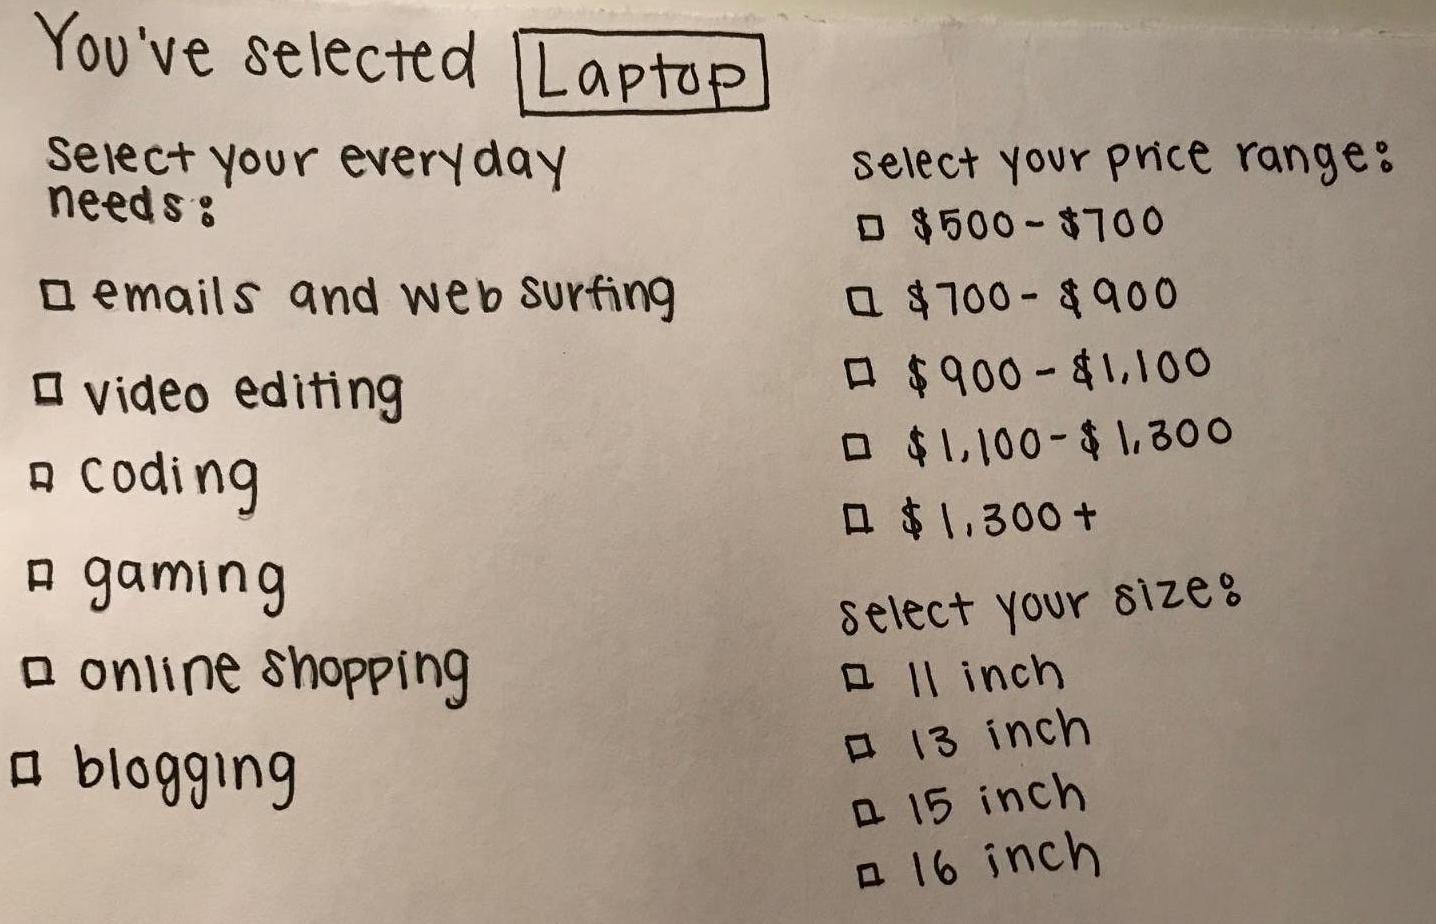 You've selected Laptop
select your everyday
needs:
emails and web surfing
video editing
coding
gaming
online shopping
blogging
select your price range:
$500-$700
$700-$900
$900-$1,100
$1,100-$1,300
$1,300+
select your size:
11 inch
13 inch
15 inch
16 inch